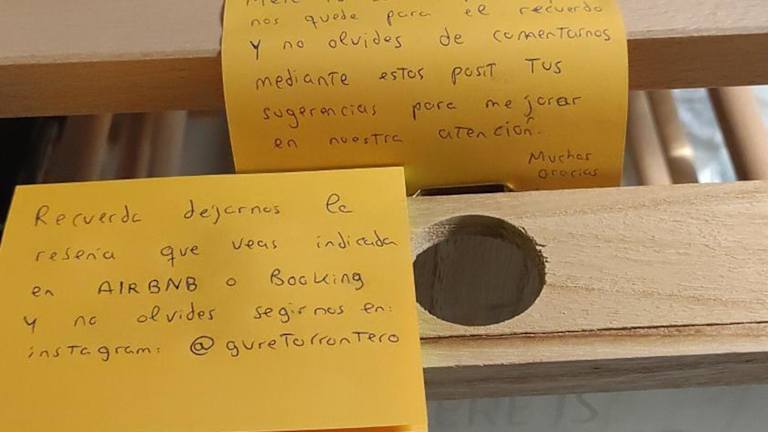 nos quede para el recuerdo
Y no olvides de comentarnos
mediante estos posit Tus
sugerencias para mejorar
en nuestra atención.
Muchas
Gracias
Recuerda dejarnos la
reseña que veas indicada
en AIRBNB o Booking
Y no olvides segirnos en:
instagram: @gureTorronTero